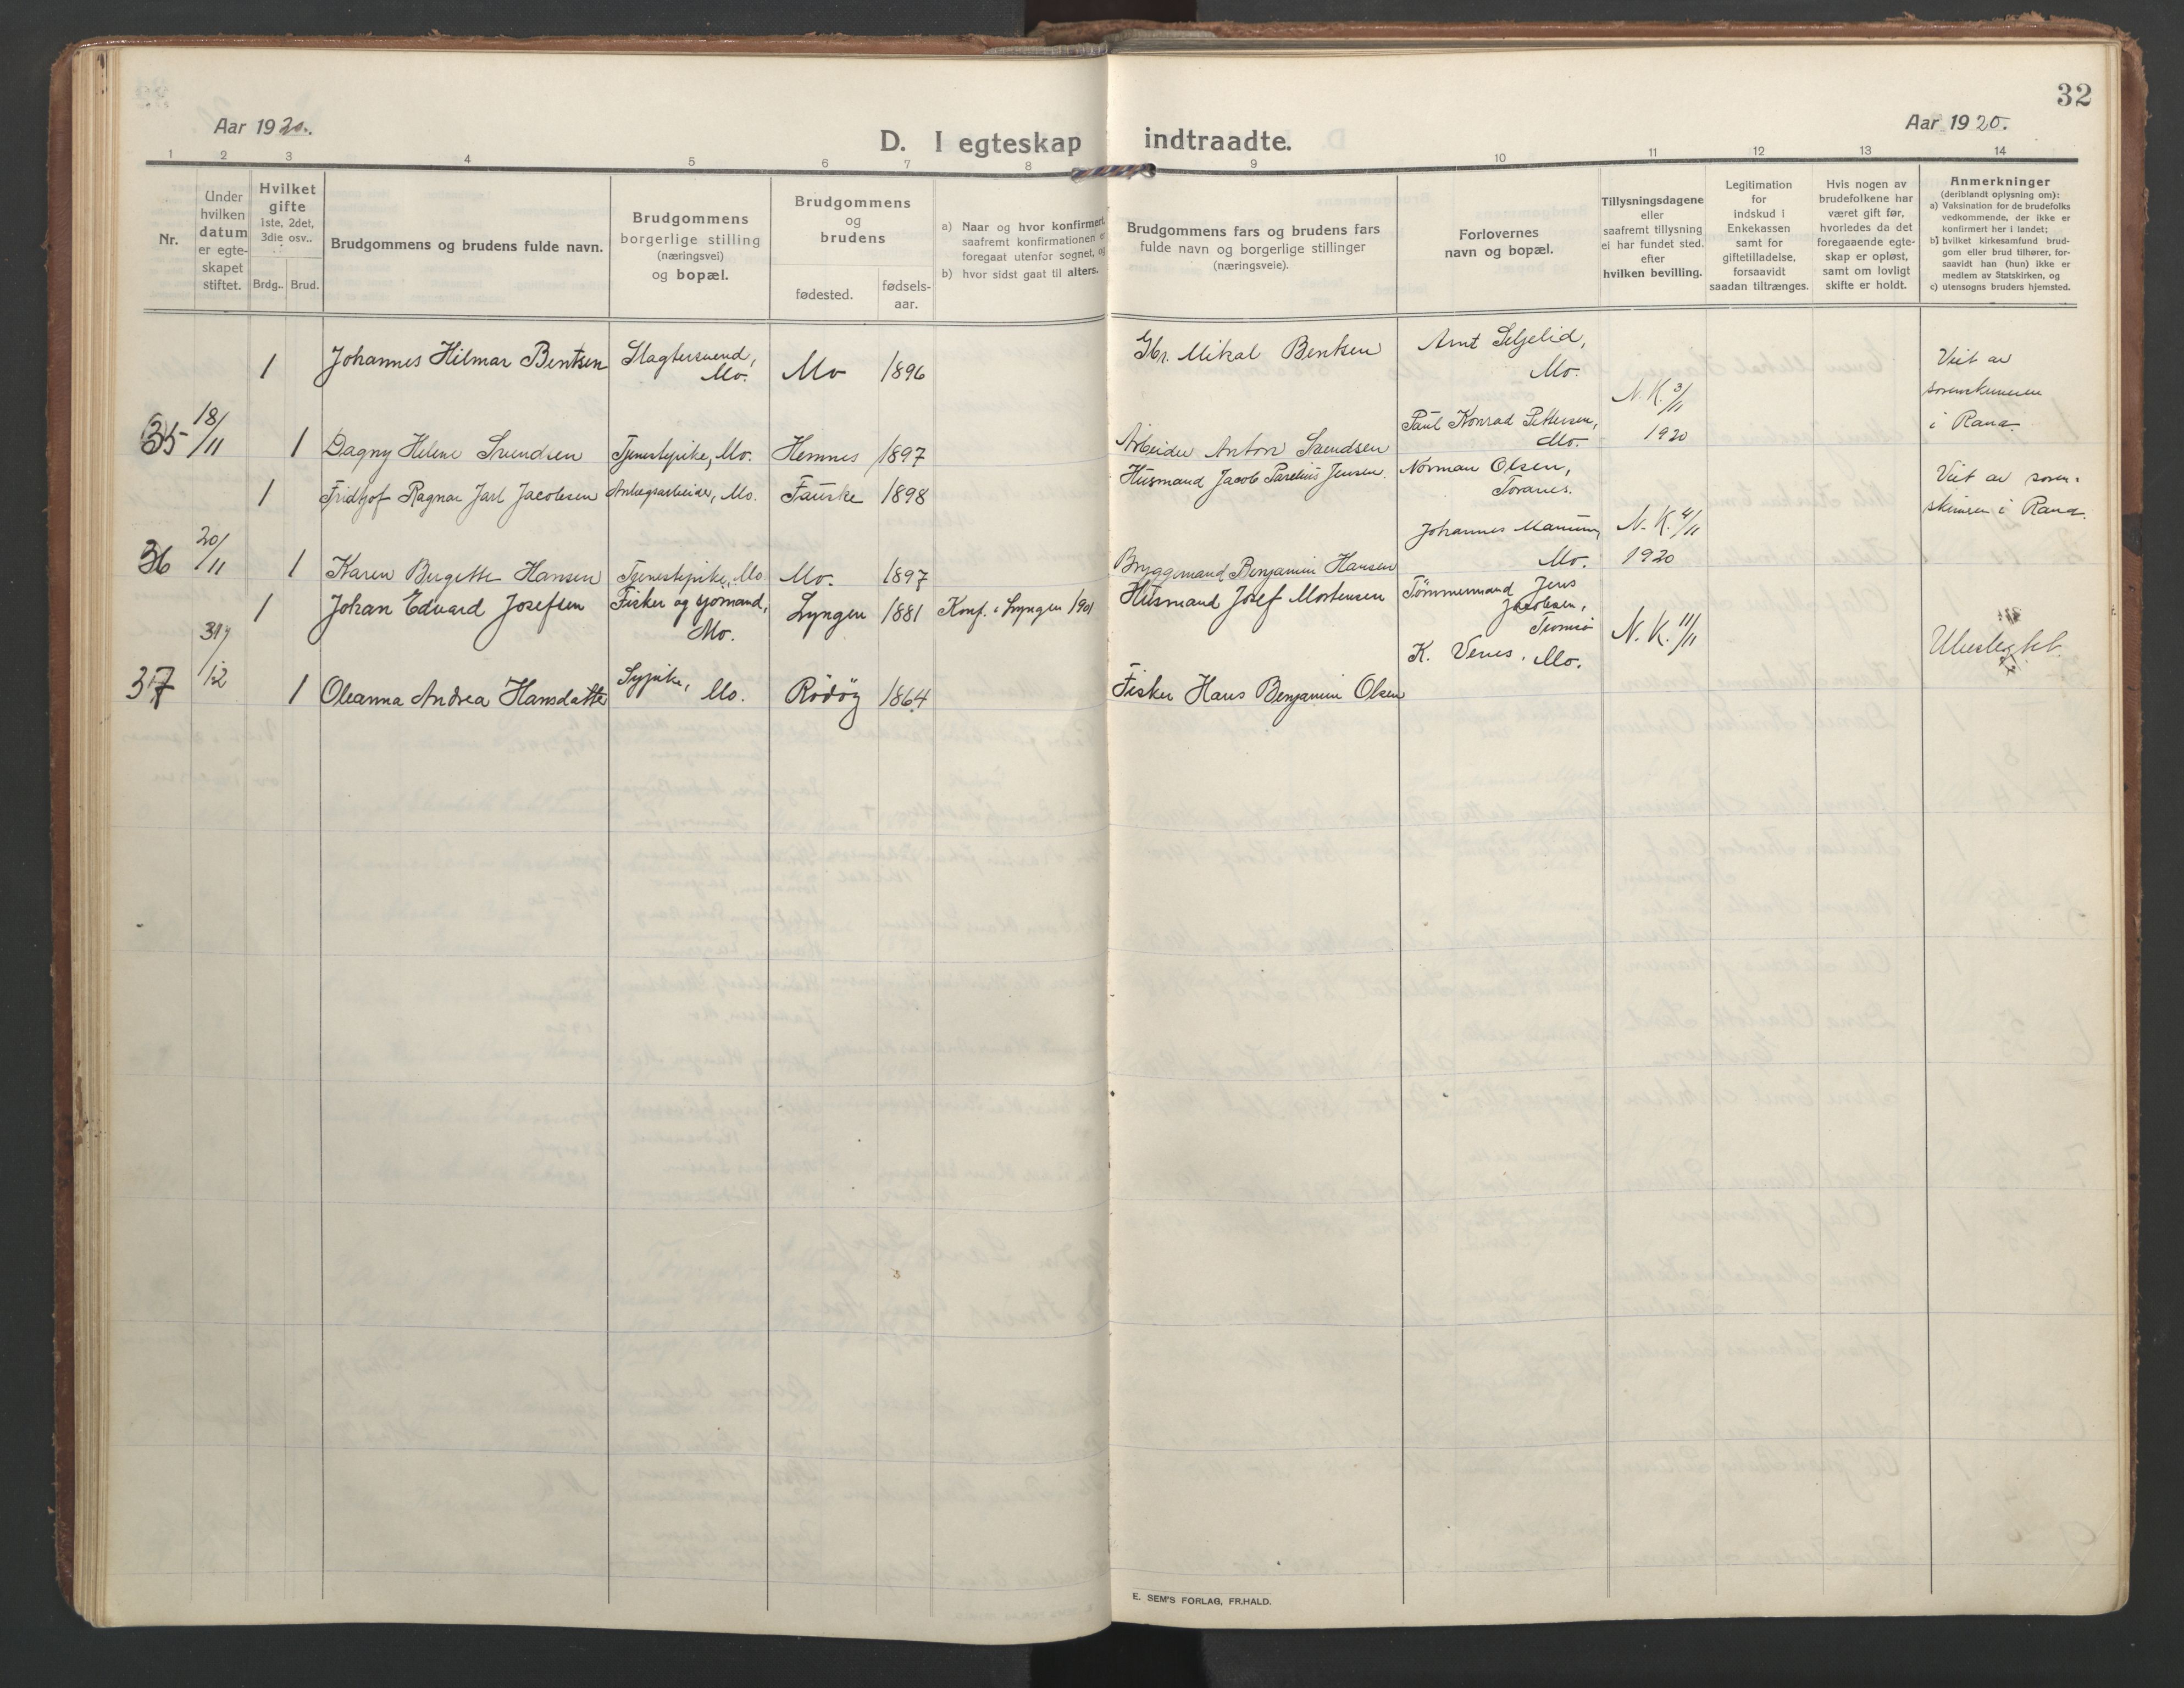 32
Aar 1920.
Aar 1920.
D. I egteskap indtraadte.
1 2 3 4 5 6 7 8 9 10 11 12 13 14
Nr.
Under hvilken datum er egteskapet stiftet.
Hvilket gifte 1ste, 2det, 3die osv..
Brdg..
Brud.
Brudgommens og brudens fulde navn.
Brudgommens borgerlige stilling (næringsvei) og bopæl.
Brudgommens og brudens
fødested.
fødsels-aar.
a) Naar og hvor konfirmert, saafremt konfirmationen er foregaat utenfor sognet, og
b) hvor sidst gaat til alters.
Brudgommens fars og brudens fars fulde navn og borgerlige stillinger (næringsveie).
Forlovernes navn og bopæl.
Tillysningsdagene eller saafremt tillysning ei har fundet sted. efter hvilken bevilling.
Legitimation for indskud i Enkekassen samt for giftetilladelse, forsaavidt saadan tiltrænges.
Hvis nogen av brudefolkene har været gift før, hvorledes da det foregaaende egteskap er opløst, samt om lovligt skifte er holdt.
Anmerkninger
(deriblandt oplysning om):
a) Vaksination for de brudefolks vedkommende, der ikke er konfirmert her i landet;
b) hvilket kirkesamfund brudgom eller brud tilhører, forsaavidt han (hun) ikke er medlem av Statskirken, og
c) utensogns bruders hjemsted.
1 Johannes Hilmar Bentsen Slagtersvend, Mo. Mo 1896 Gbr. Mikal Bentsen Arnt Seljelid, Mo. Viet av sorenskriveren i Rana.
35 18/11 1 Dagny Helene Svendsen Tjenestepike, Mo. Hemnes 1897 Arbeider Anton Svendsen Paul Konrad Pettersen, Mo. N. K. 3/11 1920
1 Fridtjof Ragnar Jarl Jacobsen Anlægsarbeider, Mo. Fauske 1898 Husmand Jacob Parelius Jensen Norman Olsen, Toranes. Viet av sorenskriveren i Rana.
36 20/11 1 Karen Bergette Hansen Tjenestepike, Mo Mo. 1897 Bryggemand Benjamin Hansen Johannes Mo. N. K. 4/11 1920
1 Johan Edvard Josefsen Fisker og sjømand, Mo. Lyngen 1881 Konf. i Lyngen 1901 Husmand Josef Mortensen Tømmermand Jens Jacobsen, Tromsø
37 12 1 Oleanna Andrea Hansdatter Sypike, Mo. Rødøy 1864 Fisker Hans Benjamin Olsen K. Venes. Mo. N. K. 11/11
E. SEM'S FORLAG, FR.HALD.